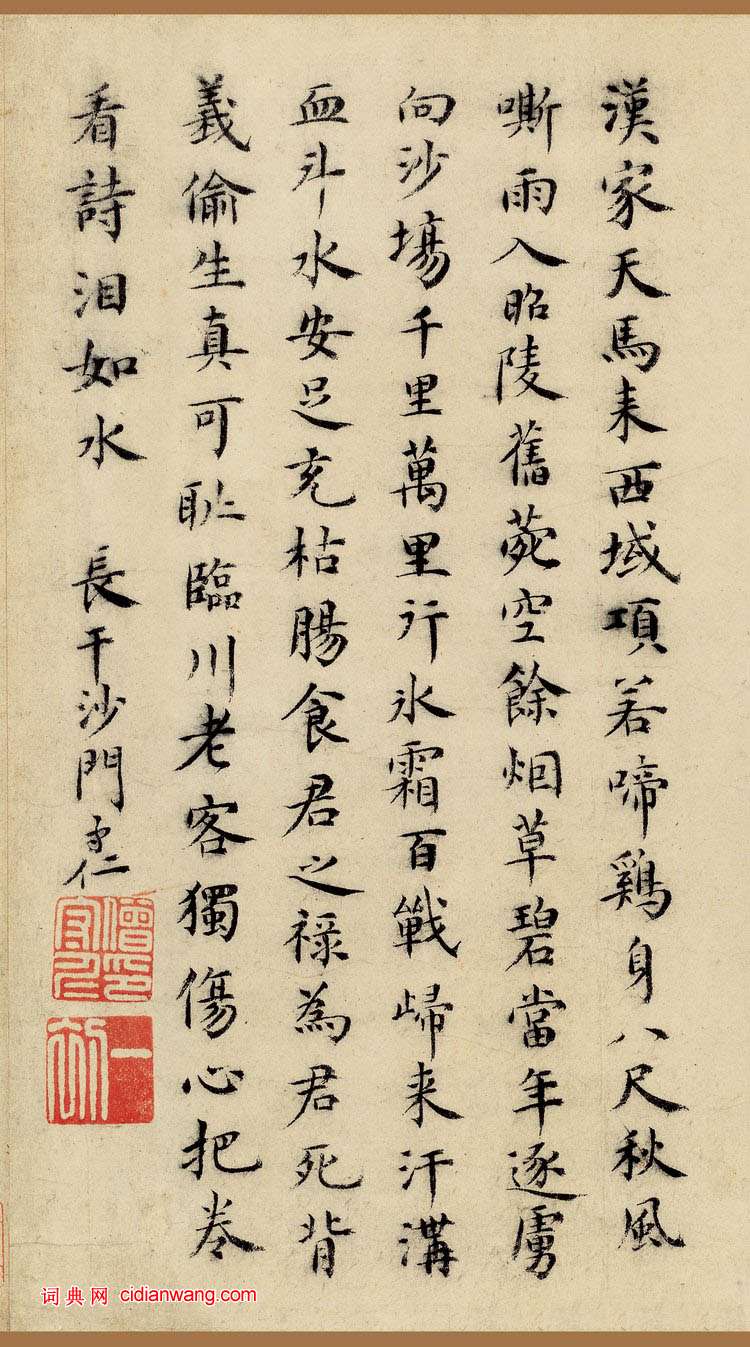 漢家天馬来西域項若啼鷄身八尺秋風
嘶雨入昭陵舊菀空餘烟草碧當年逐虜
向沙塲千里萬里行氷霜百戰歸来汗溝
血斗水安足充枯腸食君之禄為君死背
義偷生真可耻臨川老客獨傷心把卷
看詩泪如水 長干沙門守仁
僧印守仁
一初
词典网 cidianwang.com